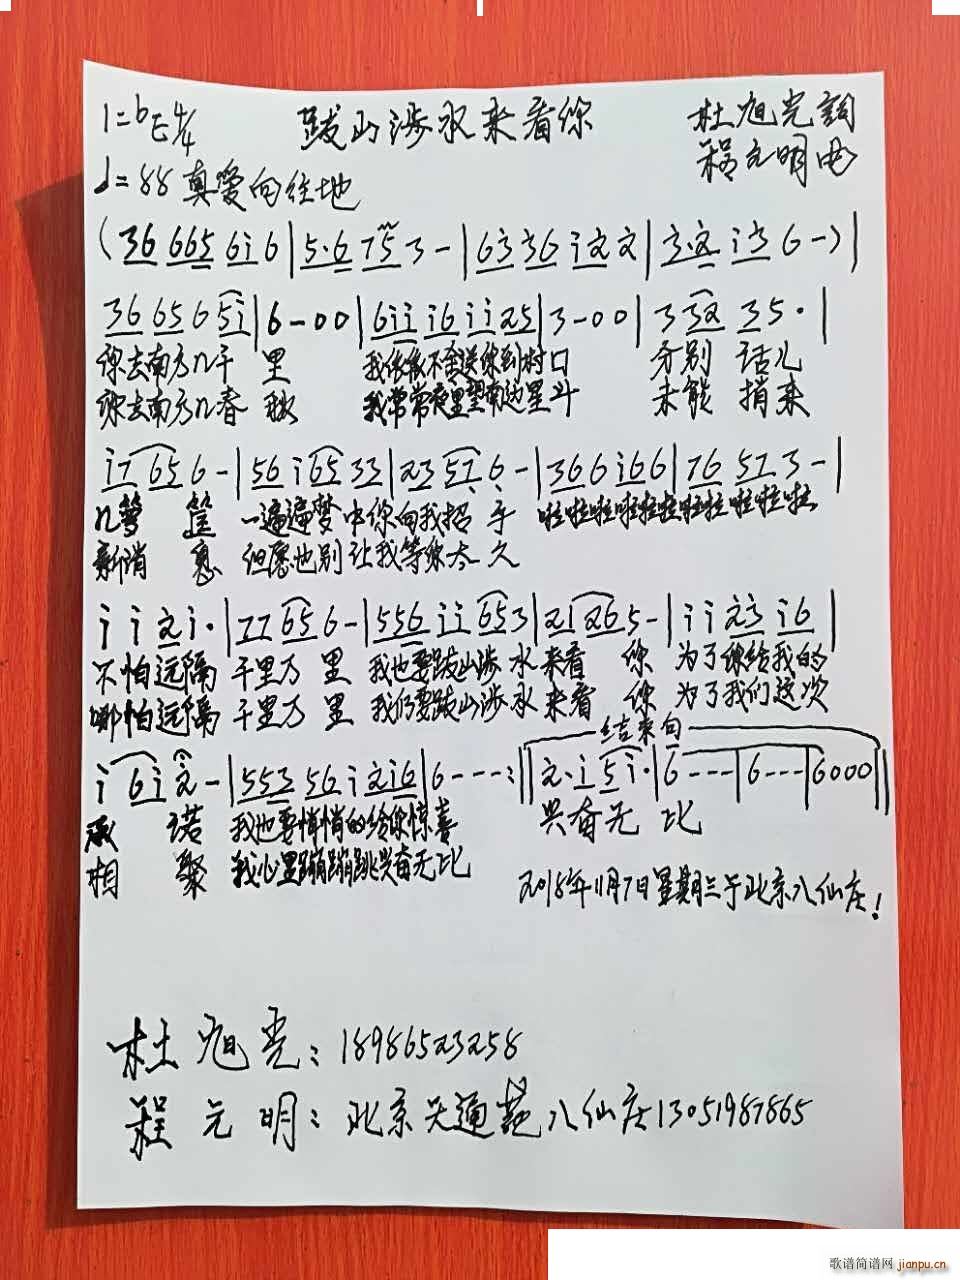 1=bE 4/4 跋山涉水来看你 杜旭光詞
程元明曲
♩=88 真愛向往地
(36 665 6i 6|5·6 75 3-|63 36 i22|3·2 i3 6-)|
36 65 6 5i|6-00|6ii i6 ii 25|3-00|3 32 35·|
你去南方几千里 我依依不舍送你到村口 分别话儿
你去南方几春秋 我常常夜里望南边星斗 未能捎来
i7 65 6-|56 i65 33|23 57 6-|366 i66|76 57 3-|
几箩筐 一遍遍梦中你向我招手 啦啦啦啦啦啦啦啦啦啦啦
新消息 但愿也别让我等你太久
i i 2i·|77 65 6-|556 ii 653|21 265-|i i 23 i6|
不怕远隔 千里万里 我也要跋山涉水来看你 为了你给我的
哪怕远隔 千里万里 我们要跋山涉水来看你 为了我们这次
结束句
i 6i 2-|553 56 i 2i6|6---:‖2·i 5i·|6---|6---|6000‖
承诺 我也要悄悄的给你惊喜 兴奋无比
相聚 我心里蹦蹦跳兴奋无比
2018年11月7日星期三于北京八仙庄!
杜旭光:18986523258
程元明:北京天通苑八仙庄13051987865
歌谱简谱网 jianpu.cn